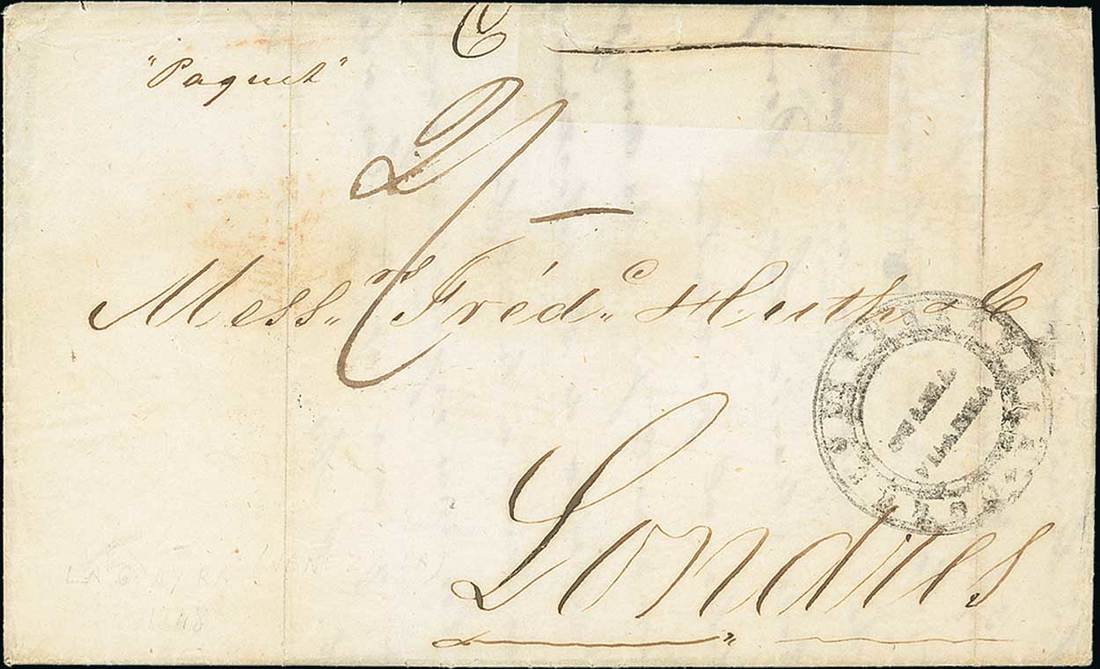 "Paquet"
2/-
Mess.rs Fréd.c Huth & C
Londres
LA GUAYRA (VENEZUELA)